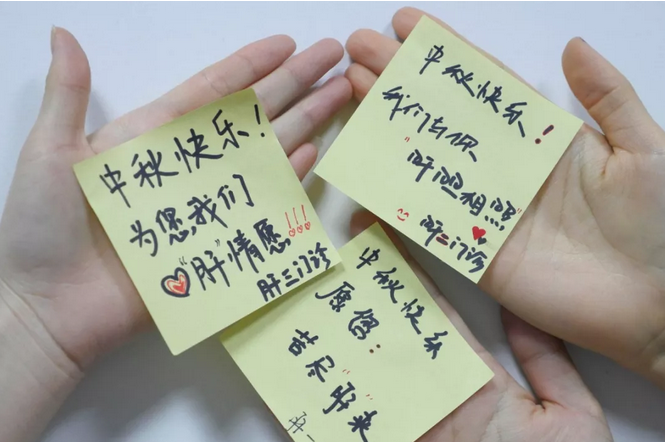 中秋快乐!
为您,我们
"肝"情愿!!!
肝三门诊
中秋快乐!
我们与你
"肝胆相照"
肝二门诊
中秋快乐
愿您:
来